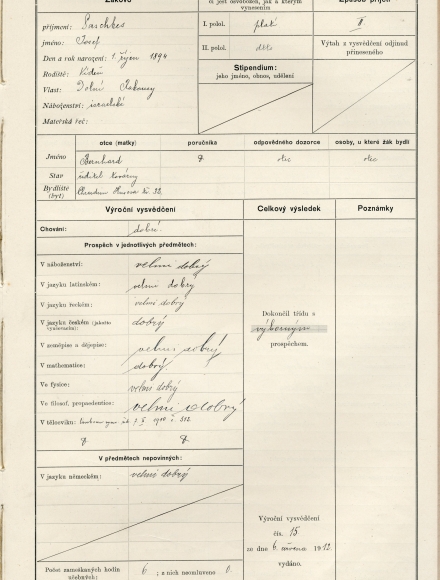 Žákovo
či jest osvobozen, jak a kterým
vynesením
Způsob přijetí
příjmení: Saschkes
jméno: Josef
Den a rok narození: 1 říjen 1894
Rodiště: Vídeň
Vlast: Dolní Rakousy
Náboženství: israelské
Mateřská řeč:
I. polol. platí
II. polol. dtto
II
Výtah z vysvědčení odjinud
přineseného
Stipendium:
jeho jméno, obnos, udělení
otce (matky) poručníka odpovědného dozorce osoby, u které žák bydlí
Jméno Bernhard otec otec
Stav ředitel továrny
Bydliště
(byt) Chrudim Husova 32
Výroční vysvědčení Celkový výsledek Poznámky
Chování: dobré.
Prospěch v jednotlivých předmětech:
V náboženství: velmi dobrý
V jazyku latinském: velmi dobrý
V jazyku řeckém: velmi dobrý
V jazyku českém (jakožto
vyučovacím): dobrý
V zeměpise a dějepise: velmi dobrý
V mathematice: dobrý
Ve fysice: velmi dobrý
Ve filosof. propaedeutice: velmi dobrý
V tělocviku:
Dokončil třídu s
výborným
prospěchem.
V předmětech nepovinných:
V jazyku německém: velmi dobrý
Výroční vysvědčení
čís. 15
ze dne 6. června 1912.
vydáno.
Počet zameškaných hodin
učebných: 6 ; z nich neomluveno 0.